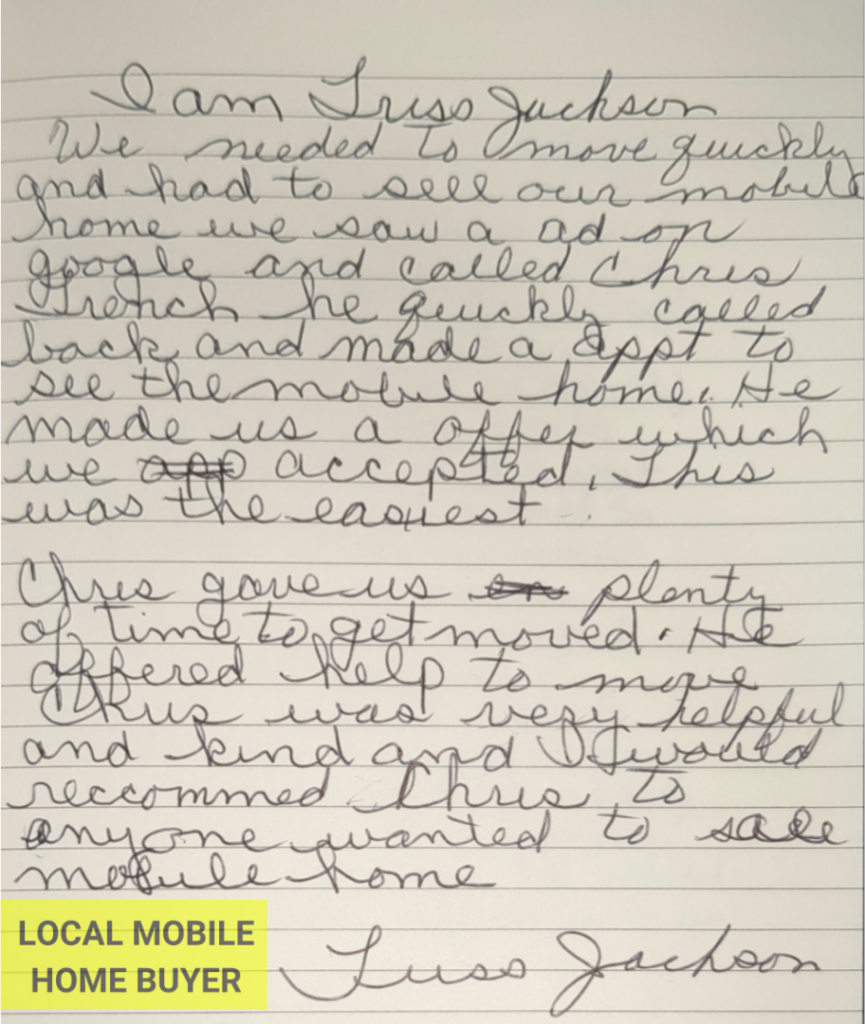 I am Triss Jackson
We needed to move quickly
and had to sell our mobile
home we saw a ad on
google and called Chris
French he quickly called
back and made a appt to
see the mobile home. He
made us a offer which
we app accepted. This
was the easiest
Chris gave us plenty
of time to get moved. He
offered help to move
Chris was very helpful
and kind and I would
reccommed Chris to
anyone wanted to sale
mobile home
LOCAL MOBILE
HOME BUYER
Jackson